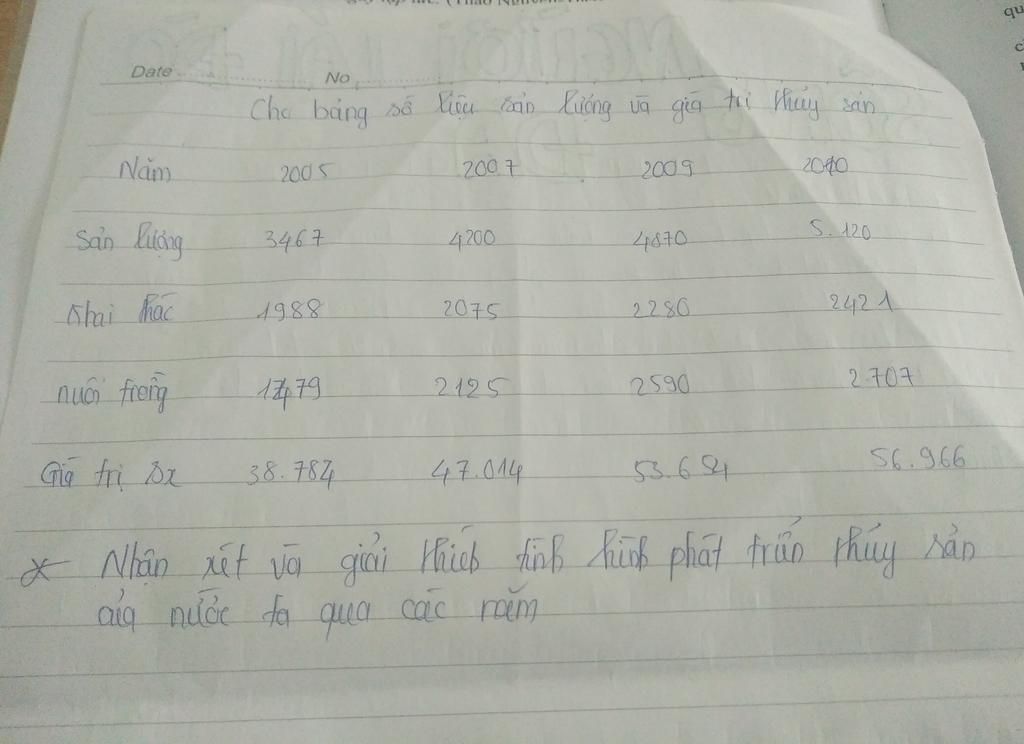 Date No
Cho bảng số liệu sản lượng và giá trị thủy sản
Năm 2005 2007 2009 2010
Sản lượng 3467 4200 4870 5.120
Khai thác 1988 2075 2280 2421
nuôi trồng 1479 2125 2590 2.707
Giá trị sx 38.784 47.014 53.654 56.966
* Nhận xét và giải thích tình hình phát triển thủy sản
của nước ta qua các năm